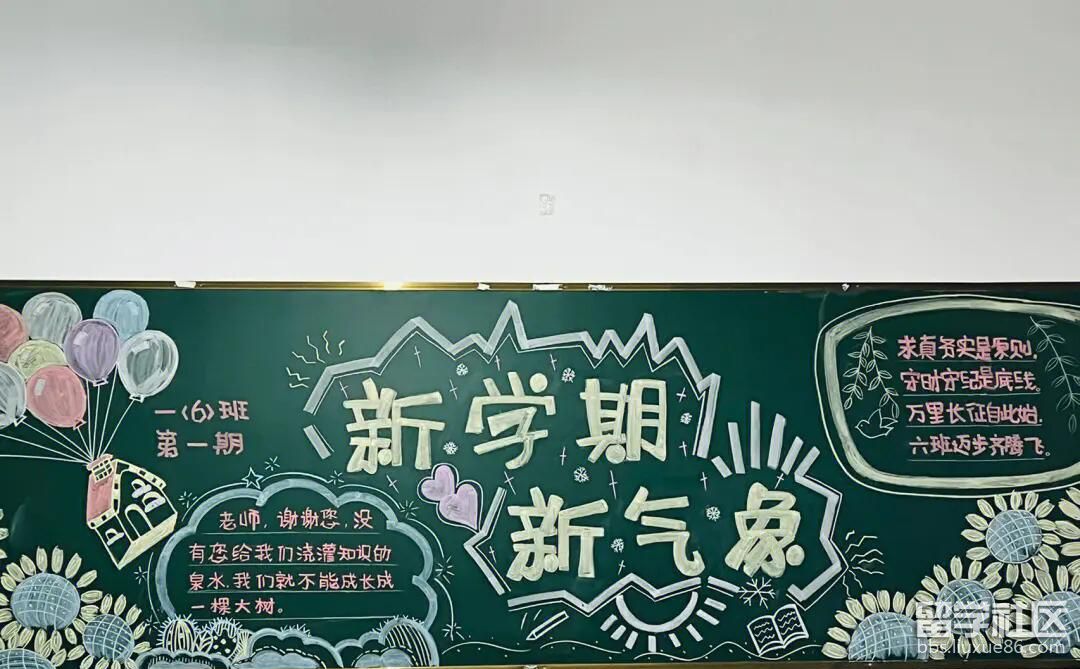 一(6)班
第一期
新学期
新气象
老师，谢谢您，没
有您给我们浇灌知识的
泉水，我们就不能成长成
一棵大树。
求真务实是原则，
守时守纪是底线。
万里长征自此始，
六班迈步齐腾飞。
留学社区
bbs.liuxue86.com